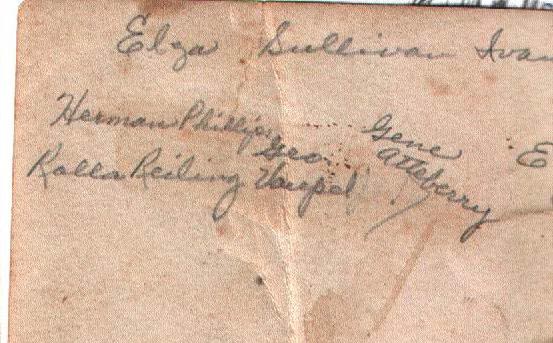 Elza Sullivan Ivan
Herman Phillips Gene E
Geo. Atteberry
Rolla Reiling Vaupel